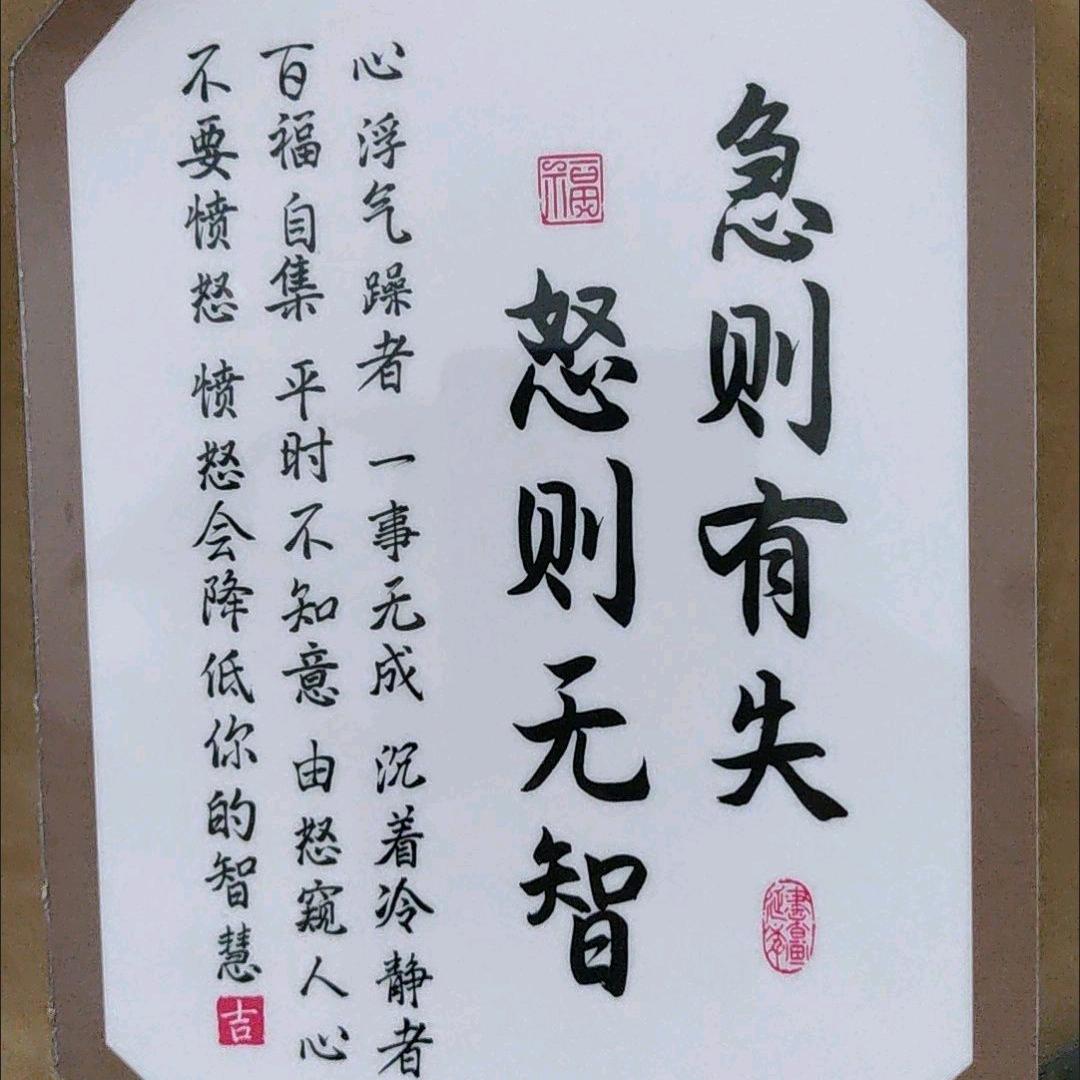 急则有失
怒则无智
福
书画延年
心浮气躁者 一事无成 沉着冷静者
百福自集 平时不知意 由怒窥人心
不要愤怒 愤怒会降低你的智慧
吉